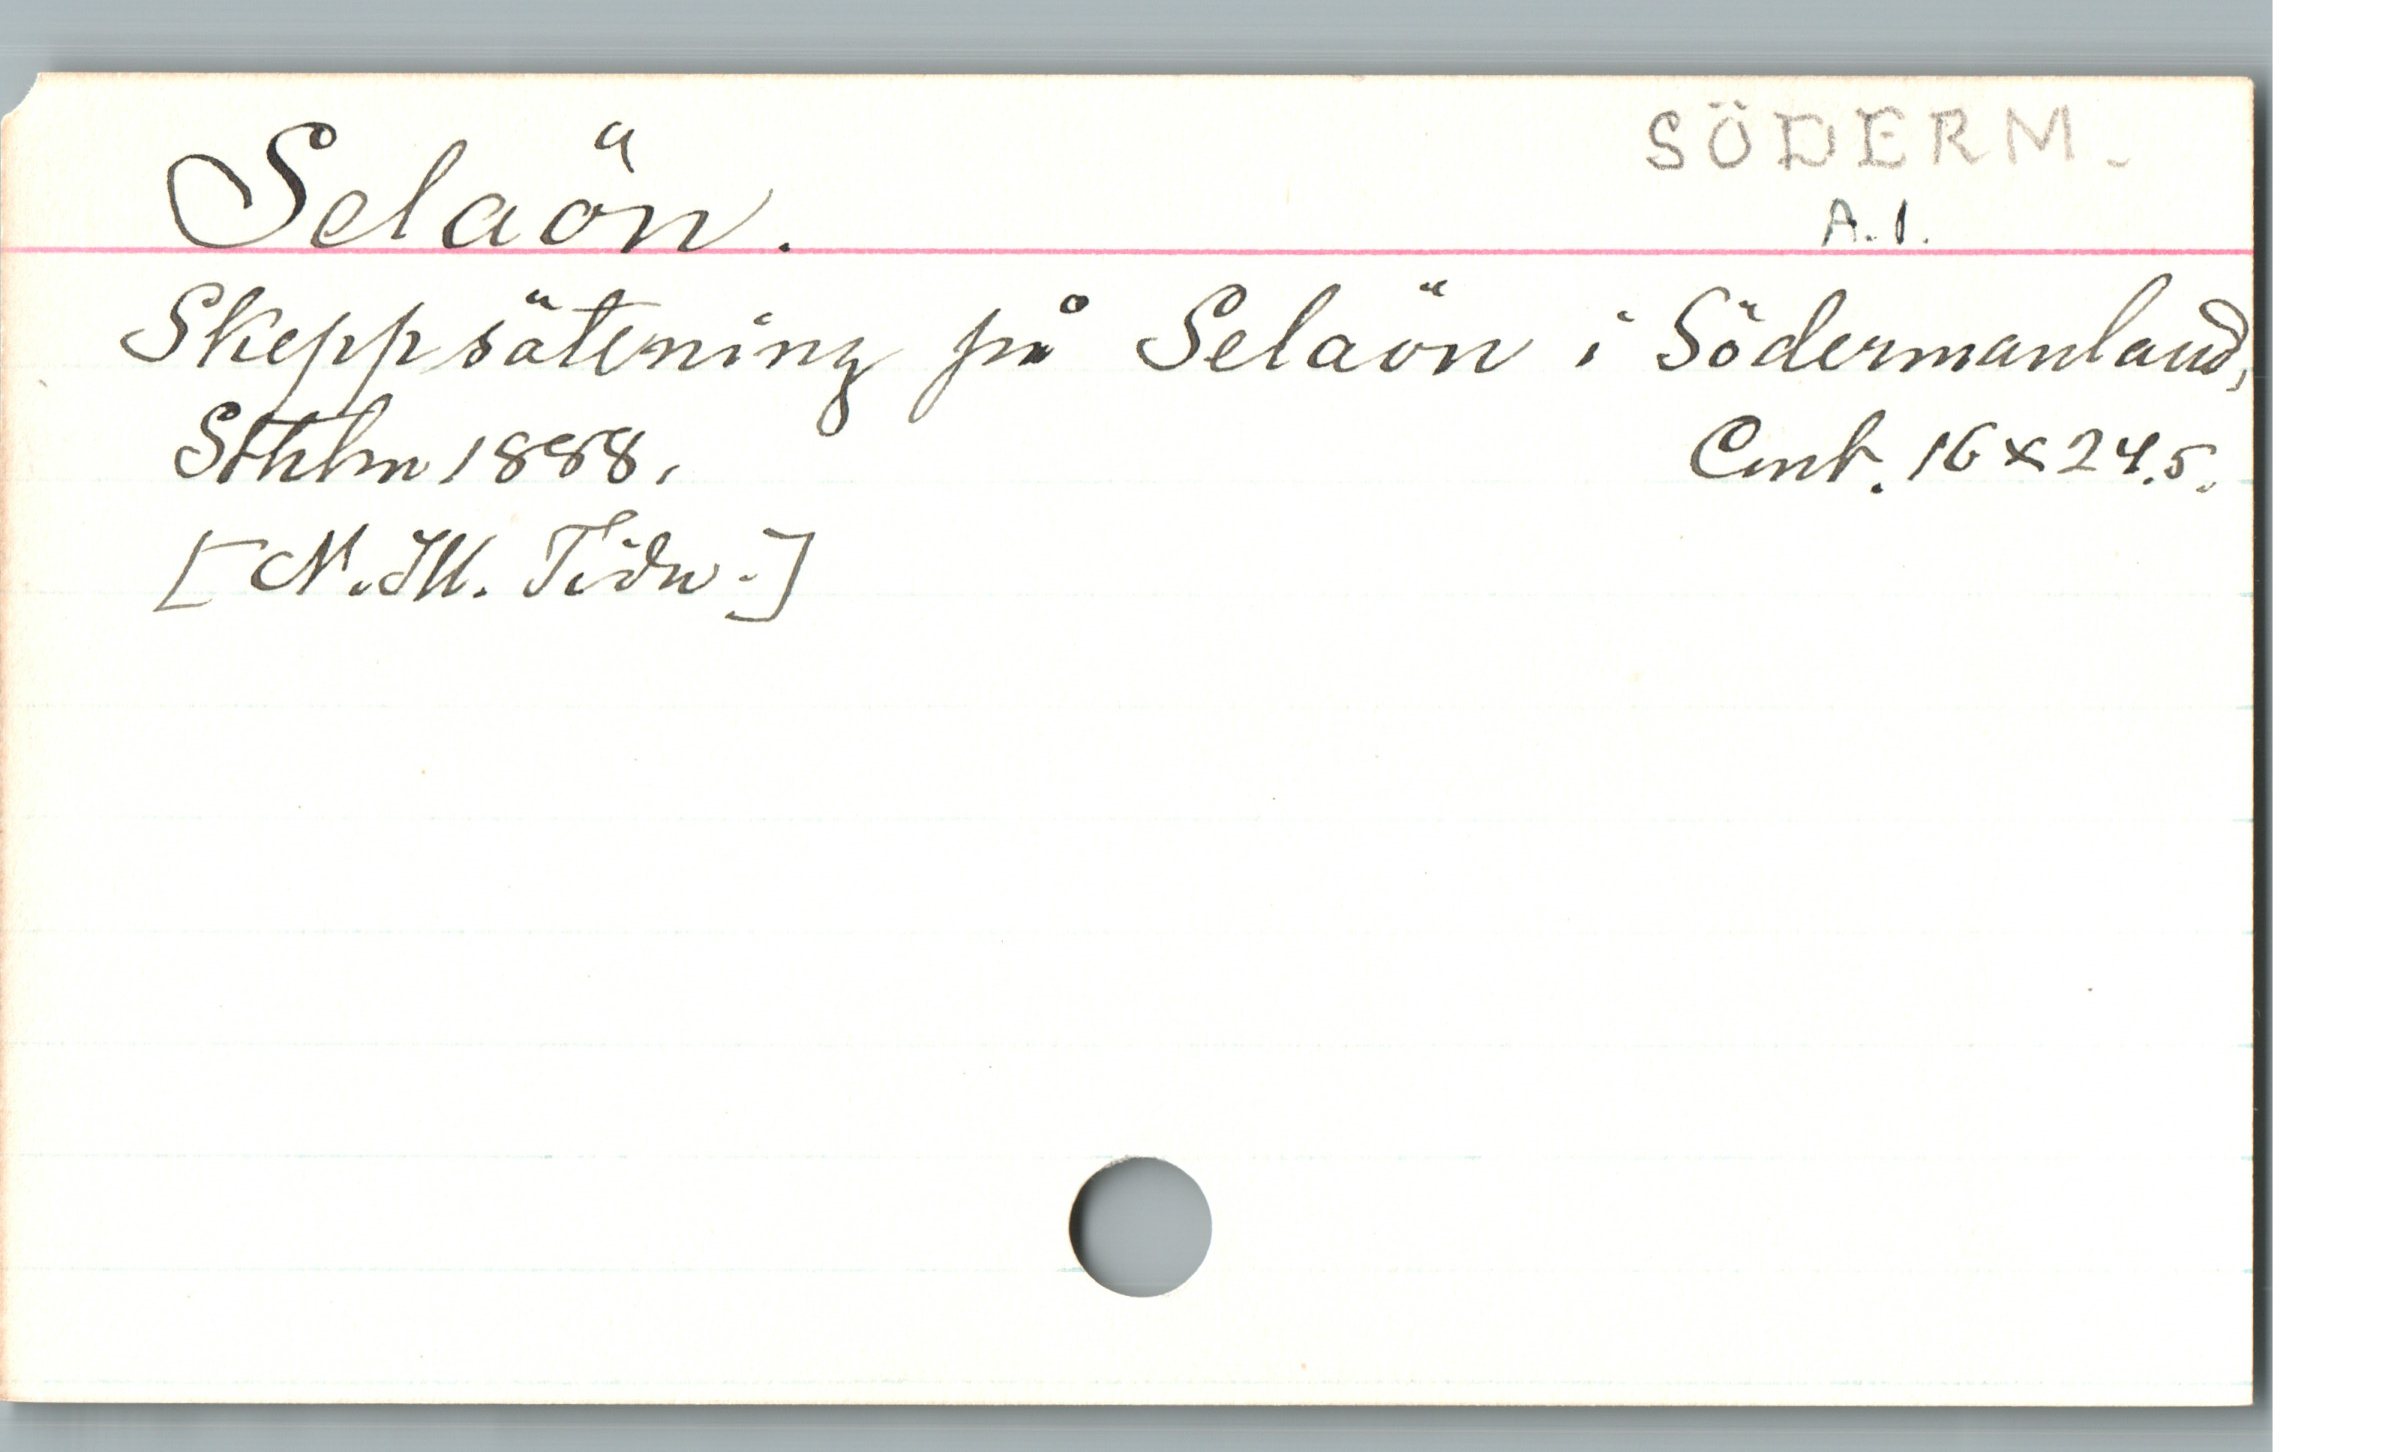 SÖDERM.
Selaön.
A.1.
Skeppsätening på Selaön i Södermanland,
Sthlm 1888.
Cent. 16 x 24.5.
[N. Ill. Tidn.]